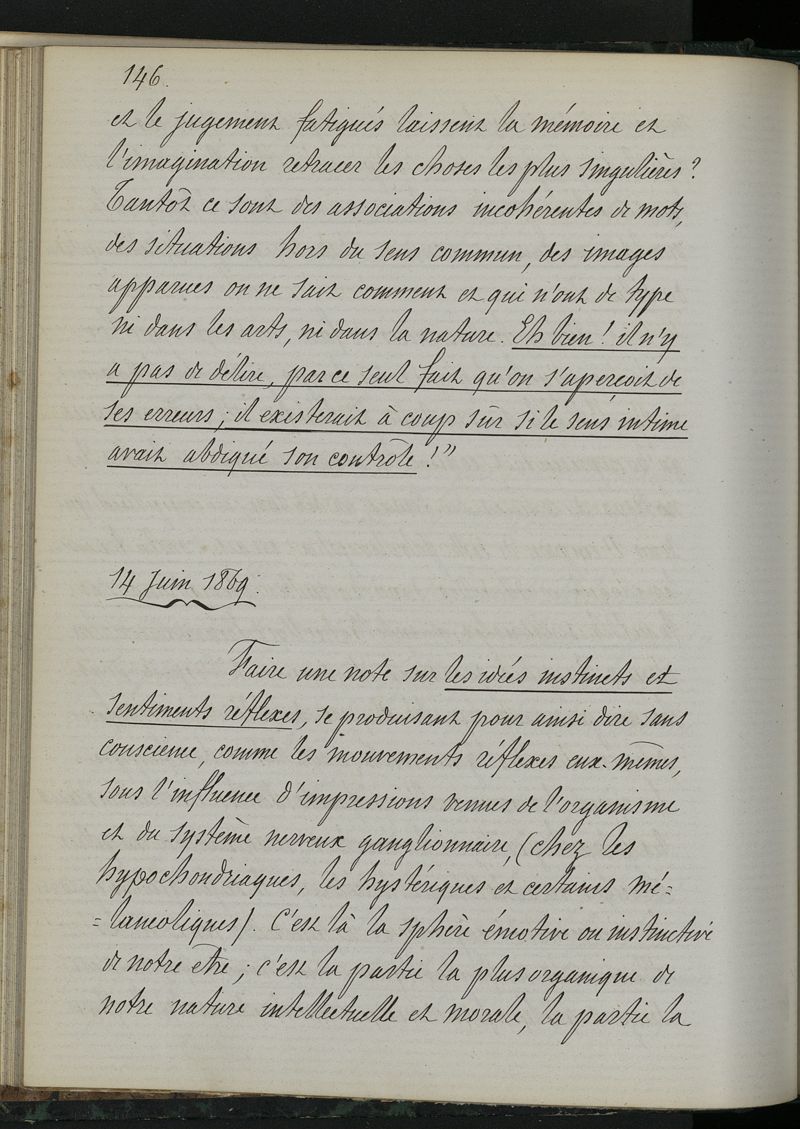 146.
et le jugement fatigués laissent la mémoire et
l'imagination retracer les choses les plus singulières?
Tantôt ce sont des associations incohérentes de mots,
des situations hors du sens commun, des images
apparues on ne sait comment et qui n'ont de type
ni dans les arts, ni dans la nature. Eh bien! il n'y
a pas de délire, par ce seul fait qu'on s'aperçoit de
ses erreurs; il existerait à coup sûr si le sens intime
avait abdiqué son contrôle!"
14 Juin 1869.
Faire une note sur les idées instincts et
sentiments réflexes, se produisant pour ainsi dire sans
conscience, comme les mouvements réflexes eux-mêmes,
sous l'influence d'impressions venues de l'organisme
et du système nerveux ganglionnaire, (chez les
hypochondriaques, les hystériques et certains mé=
=lancoliques). C'est là la sphère émotive ou instinctive
de notre être; c'est la partie la plus organique de
notre nature intellectuelle et morale, la partie la